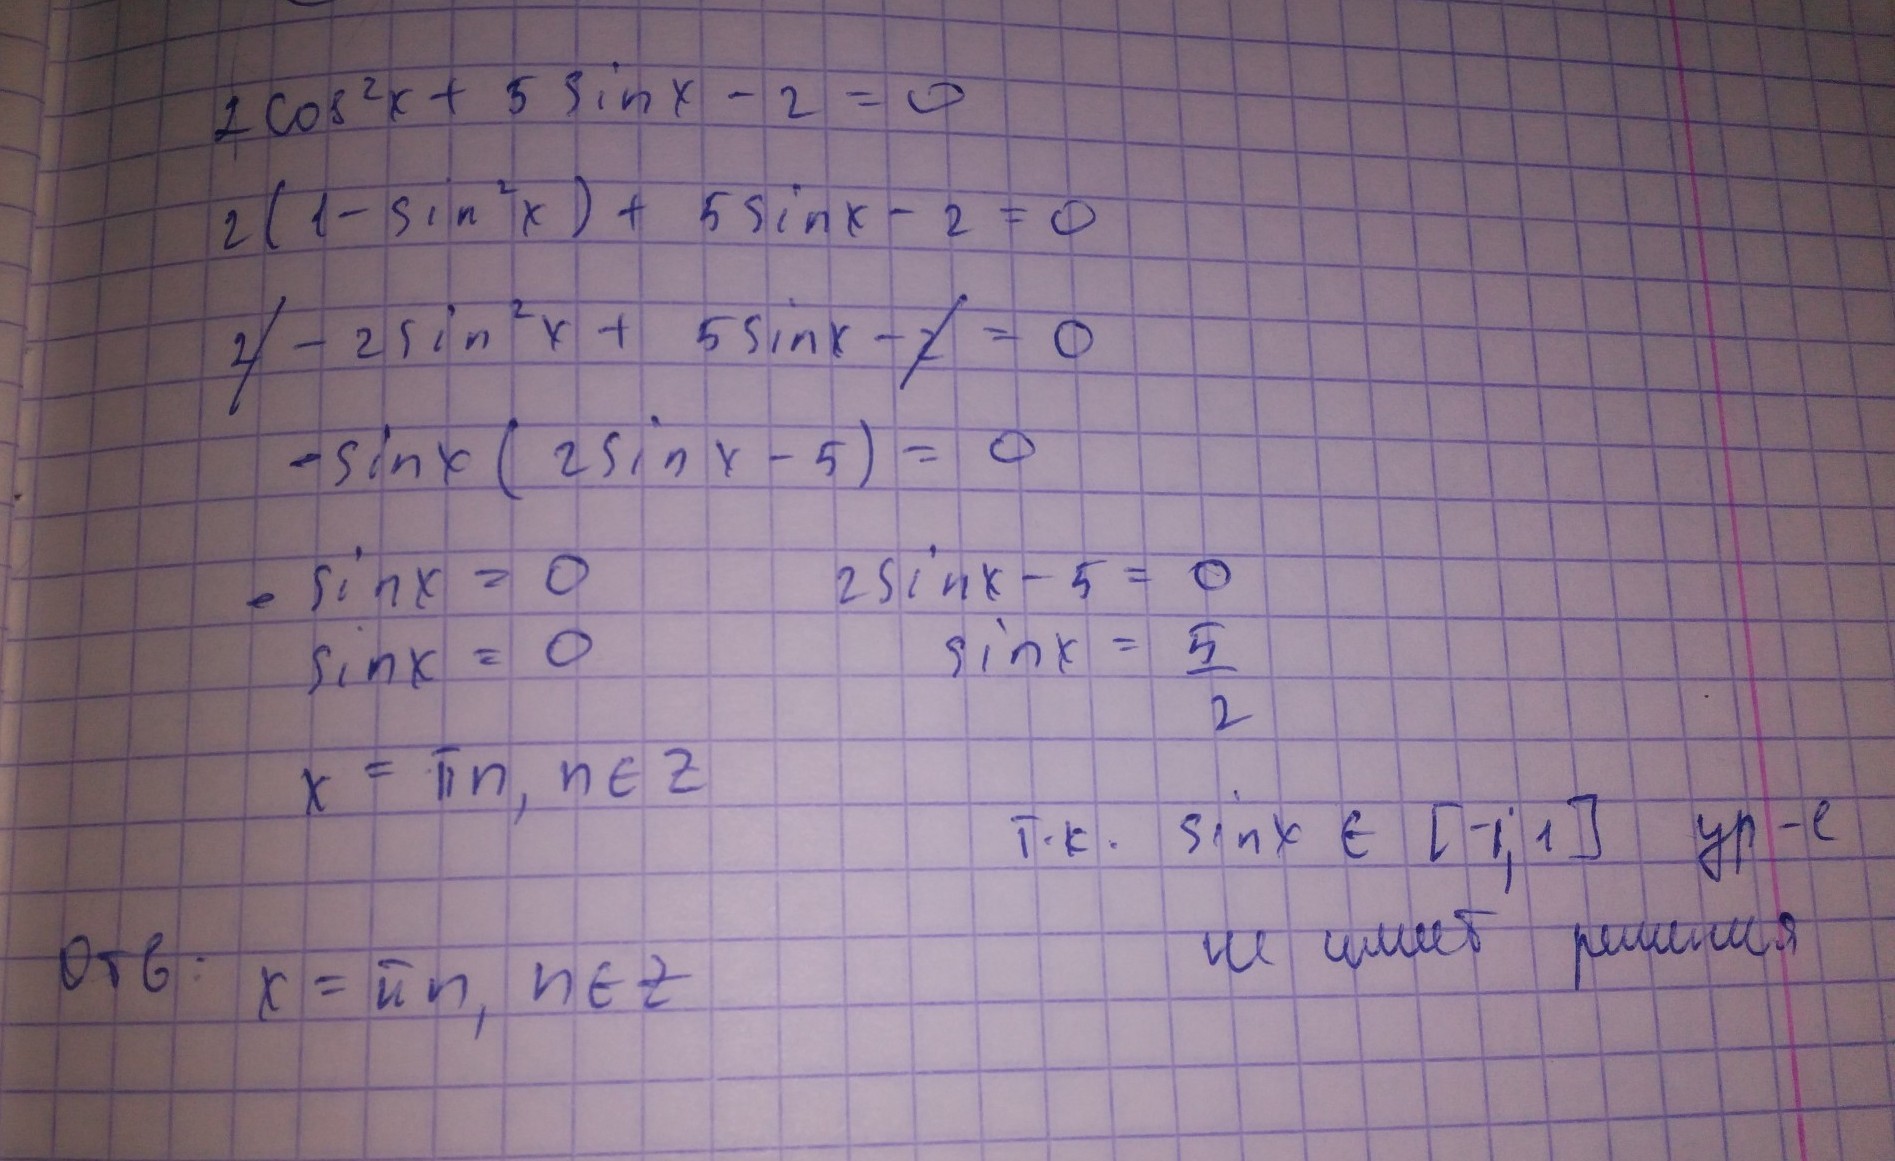 2cos²x + 5 sinx - 2 = 0
2(1 - sin²x) + 5sinx - 2 = 0
2 - 2sin²x + 5sinx - 2 = 0
-sinx(2sinx - 5) = 0
- sinx = 0 2sinx - 5 = 0
sinx = 0 sinx = 5/2
x = πn, n∈Z
т.к. sinx ∈ [-1; 1] ур-е
не имеет решения
Отв: x = πn, n∈Z